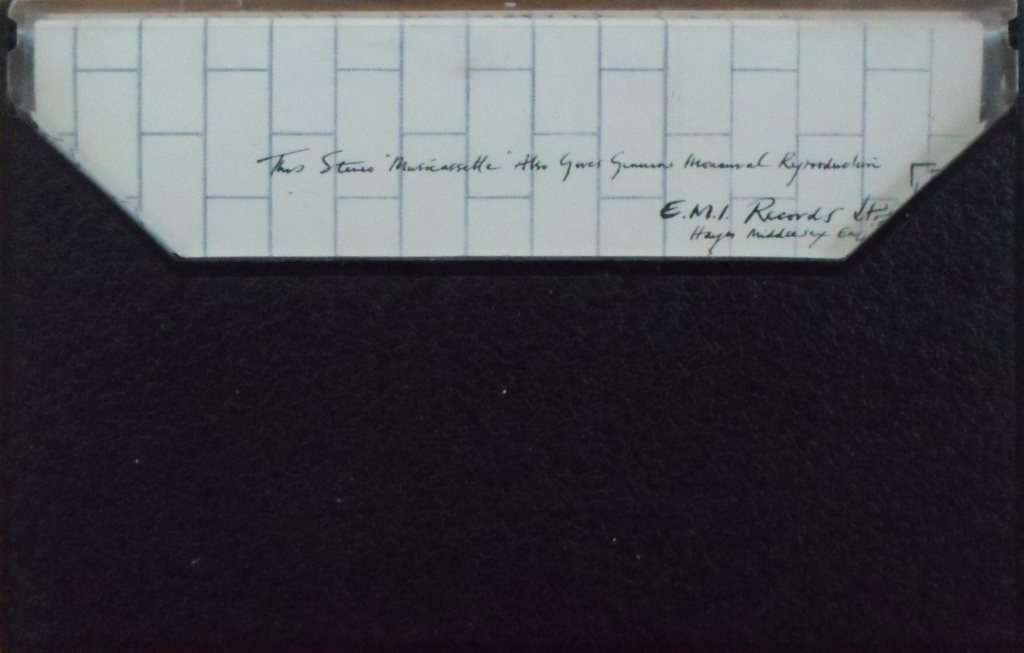 This Stereo "Musicassette" Also Gives Genuine Monaural Reproduction
E.M.I. Records Ltd
Hayes Middlesex Eng